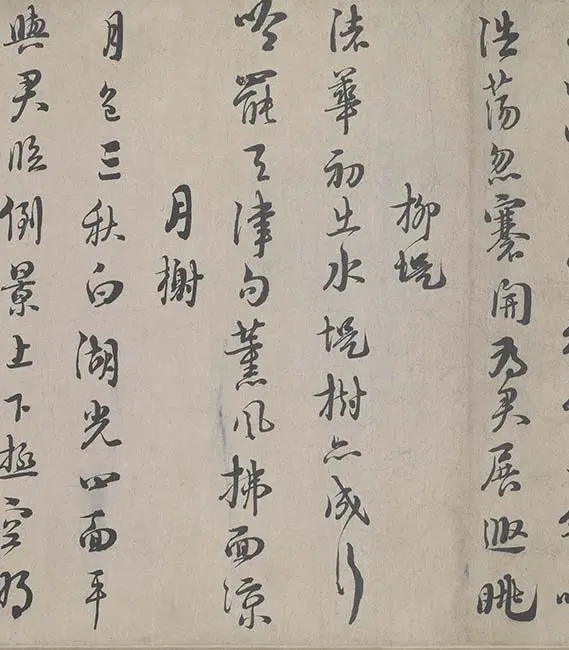 浩蕩忽褰開為君展遐眺
柳堤
渚華初出水堤樹亦成行
吟罷天津句薰風拂面涼
月榭
月色三秋白湖光四面平
與君臨倒景上下極空明